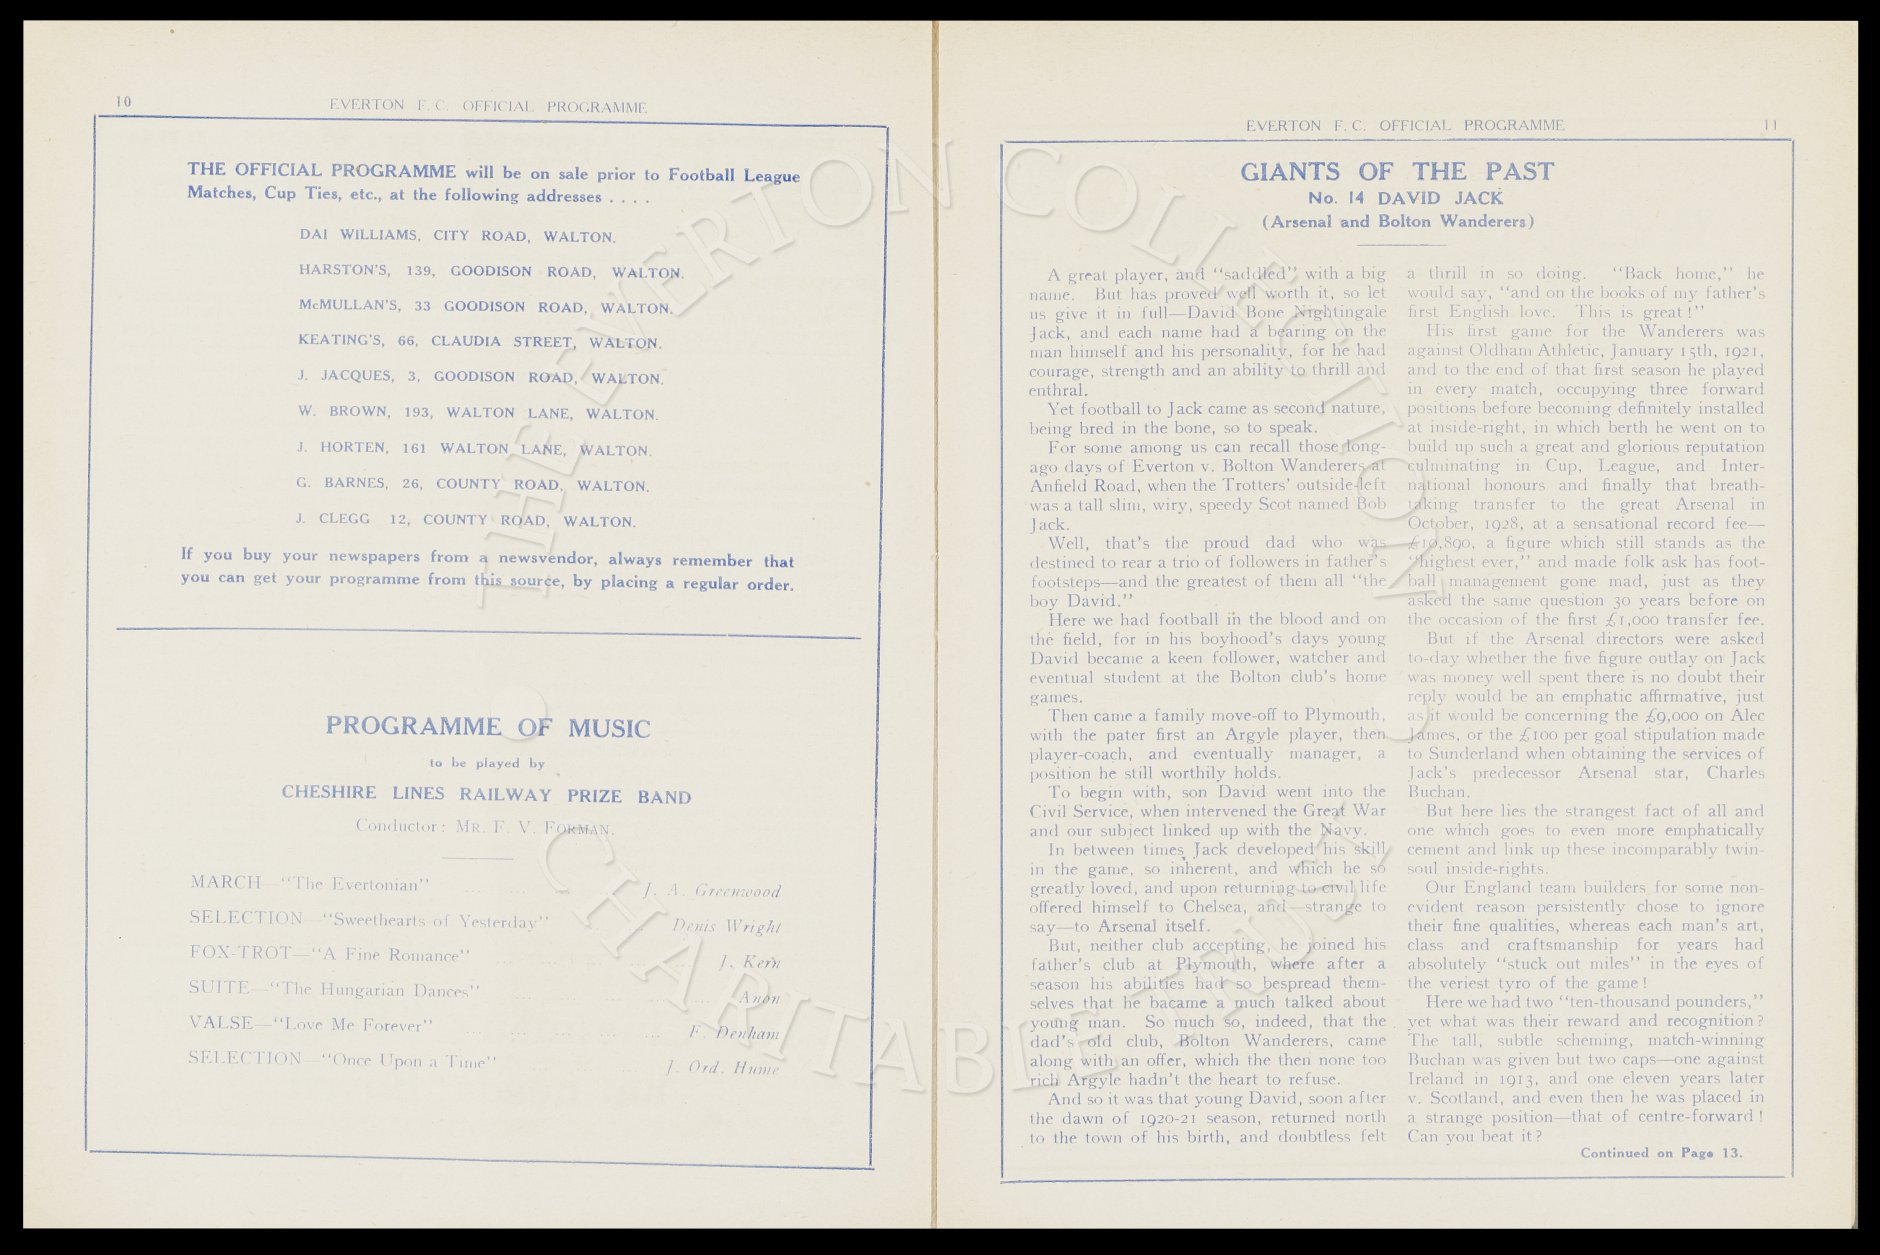 10
EVERTON F. C. OFFICIAL PROGRAMME
THE OFFICIAL PROGRAMME will be on sale prior to Football League
Matches, Cup Ties, etc., at the following addresses . . . .
DAI WILLIAMS, CITY ROAD, WALTON.
HARSTON'S, 139, GOODISON ROAD, WALTON.
McMULLAN'S, 33 GOODISON ROAD, WALTON.
KEATING'S, 66, CLAUDIA STREET, WALTON.
J. JACQUES, 3, GOODISON ROAD, WALTON.
W. BROWN, 193, WALTON LANE, WALTON.
J. HORTEN, 161 WALTON LANE, WALTON.
G. BARNES, 26, COUNTY ROAD, WALTON.
J. CLEGG 12, COUNTY ROAD, WALTON.
If you buy your newspapers from a newsvendor, always remember that
you can get your programme from this source, by placing a regular order.
PROGRAMME OF MUSIC
to be played by
CHESHIRE LINES RAILWAY PRIZE BAND
Conductor: MR. F. V. FORMAN.
MARCH—"The Evertonian" J. A. Greenwood
SELECTION—"Sweethearts of Yesterday" Denis Wright
FOX-TROT—"A Fine Romance" J. Kern
SUITE—"The Hungarian Dances" Anon
VALSE—"Love Me Forever" F. Denham
SELECTION—"Once Upon a Time" J. Ord. Hume
EVERTON F. C. OFFICIAL PROGRAMME
11
GIANTS OF THE PAST
No. 14 DAVID JACK
(Arsenal and Bolton Wanderers)
A great player, and "saddled" with a big
name. But has proved well worth it, so let
us give it in full—David Bone Nightingale
Jack, and each name had a bearing on the
man himself and his personality, for he had
courage, strength and an ability to thrill and
enthral.
Yet football to Jack came as second nature,
being bred in the bone, so to speak.
For some among us can recall those long-
ago days of Everton v. Bolton Wanderers at
Anfield Road, when the Trotters' outside-left
was a tall slim, wiry, speedy Scot named Bob
Jack.
Well, that's the proud dad who was
destined to rear a trio of followers in father's
footsteps—and the greatest of them all "the
boy David."
Here we had football in the blood and on
the field, for in his boyhood's days young
David became a keen follower, watcher and
eventual student at the Bolton club's home
games.
Then came a family move-off to Plymouth,
with the pater first an Argyle player, then
player-coach, and eventually manager, a
position he still worthily holds.
To begin with, son David went into the
Civil Service, when intervened the Great War
and our subject linked up with the Navy.
In between times Jack developed his skill
in the game, so inherent, and which he so
greatly loved, and upon returning to civil life
offered himself to Chelsea, and—strange to
say—to Arsenal itself.
But, neither club accepting, he joined his
father's club at Plymouth, where after a
season his abilities had so bespread them-
selves that he bacame a much talked about
young man. So much so, indeed, that the
dad's old club, Bolton Wanderers, came
along with an offer, which the then none too
rich Argyle hadn't the heart to refuse.
And so it was that young David, soon after
the dawn of 1920-21 season, returned north
to the town of his birth, and doubtless felt
a thrill in so doing. "Back home," he
would say, "and on the books of my father's
first English love. This is great!"
His first game for the Wanderers was
against Oldham Athletic, January 15th, 1921,
and to the end of that first season he played
in every match, occupying three forward
positions before becoming definitely installed
at inside-right, in which berth he went on to
build up such a great and glorious reputation
culminating in Cup, League, and Inter-
national honours and finally that breath-
taking transfer to the great Arsenal in
October, 1928, at a sensational record fee—
£10,890, a figure which still stands as the
"highest ever," and made folk ask has foot-
ball management gone mad, just as they
asked the same question 30 years before on
the occasion of the first £1,000 transfer fee.
But if the Arsenal directors were asked
to-day whether the five figure outlay on Jack
was money well spent there is no doubt their
reply would be an emphatic affirmative, just
as it would be concerning the £9,000 on Alec
James, or the £100 per goal stipulation made
to Sunderland when obtaining the services of
Jack's predecessor Arsenal star, Charles
Buchan.
But here lies the strangest fact of all and
one which goes to even more emphatically
cement and link up these incomparably twin-
soul inside-rights.
Our England team builders for some non-
evident reason persistently chose to ignore
their fine qualities, whereas each man's art,
class and craftsmanship for years had
absolutely "stuck out miles" in the eyes of
the veriest tyro of the game!
Here we had two "ten-thousand pounders,"
yet what was their reward and recognition?
The tall, subtle scheming, match-winning
Buchan was given but two caps—one against
Ireland in 1913, and one eleven years later
v. Scotland, and even then he was placed in
a strange position—that of centre-forward!
Can you beat it?
Continued on Page 13.
THE EVERTON COLLECTION
CHARITABLE TRUST